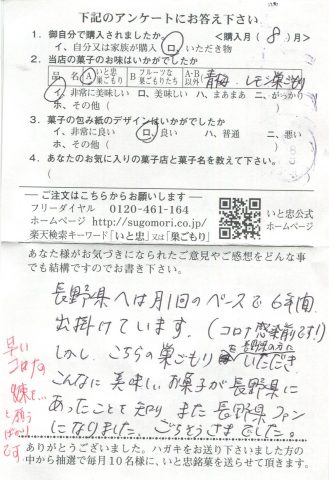 下記のアンケートにお答え下さい
1. 御自分で購入されましたか <購入月( 8 )月>
イ、自分又は家族が購入 ロ、いただき物
2. 当店の菓子のお味はいかがでしたか
品名 A いと忠巣ごもり B フルーツな巣ごもりたち A・B以外 青梅 レモン巣ごもり
イ、非常に美味しい ロ、美味しい ハ、まあまあ ニ、がっかり
ホ、その他(
3. 菓子の包み紙のデザインはいかがでしたか
イ、非常に良い ロ、良い ハ、普通 ニ、悪い
ホ、その他(
4. あなたのお気に入りの菓子店と菓子名を教えて下さい。
( )
ご注文はこちらからお願いします
フリーダイヤル 0120-461-164
ホームページ http://sugomori.co.jp/
楽天検索キーワード「いと忠」又は「巣ごもり」
いと忠公式
ホームページ
あなた様がお気づきになられたご意見やご感想をどんな事
でも結構ですのでお書き下さい。
長野県へは月1回のペースで6年間
出掛けています。(コロナ感染前です!)
しかし、こちらの巣ごもり 長野県の方に いただき
こんなに美味しいお菓子が長野県に
あったことを知り、また長野県ファン
になりました。ごちそうさまでした。
早い
コロナの
終束を…
と願う
ばかり
です
ありがとうございました。ハガキをお送り下さいました方の
中から抽選で毎月10名様に、いと忠銘菓を送らせて頂きます。